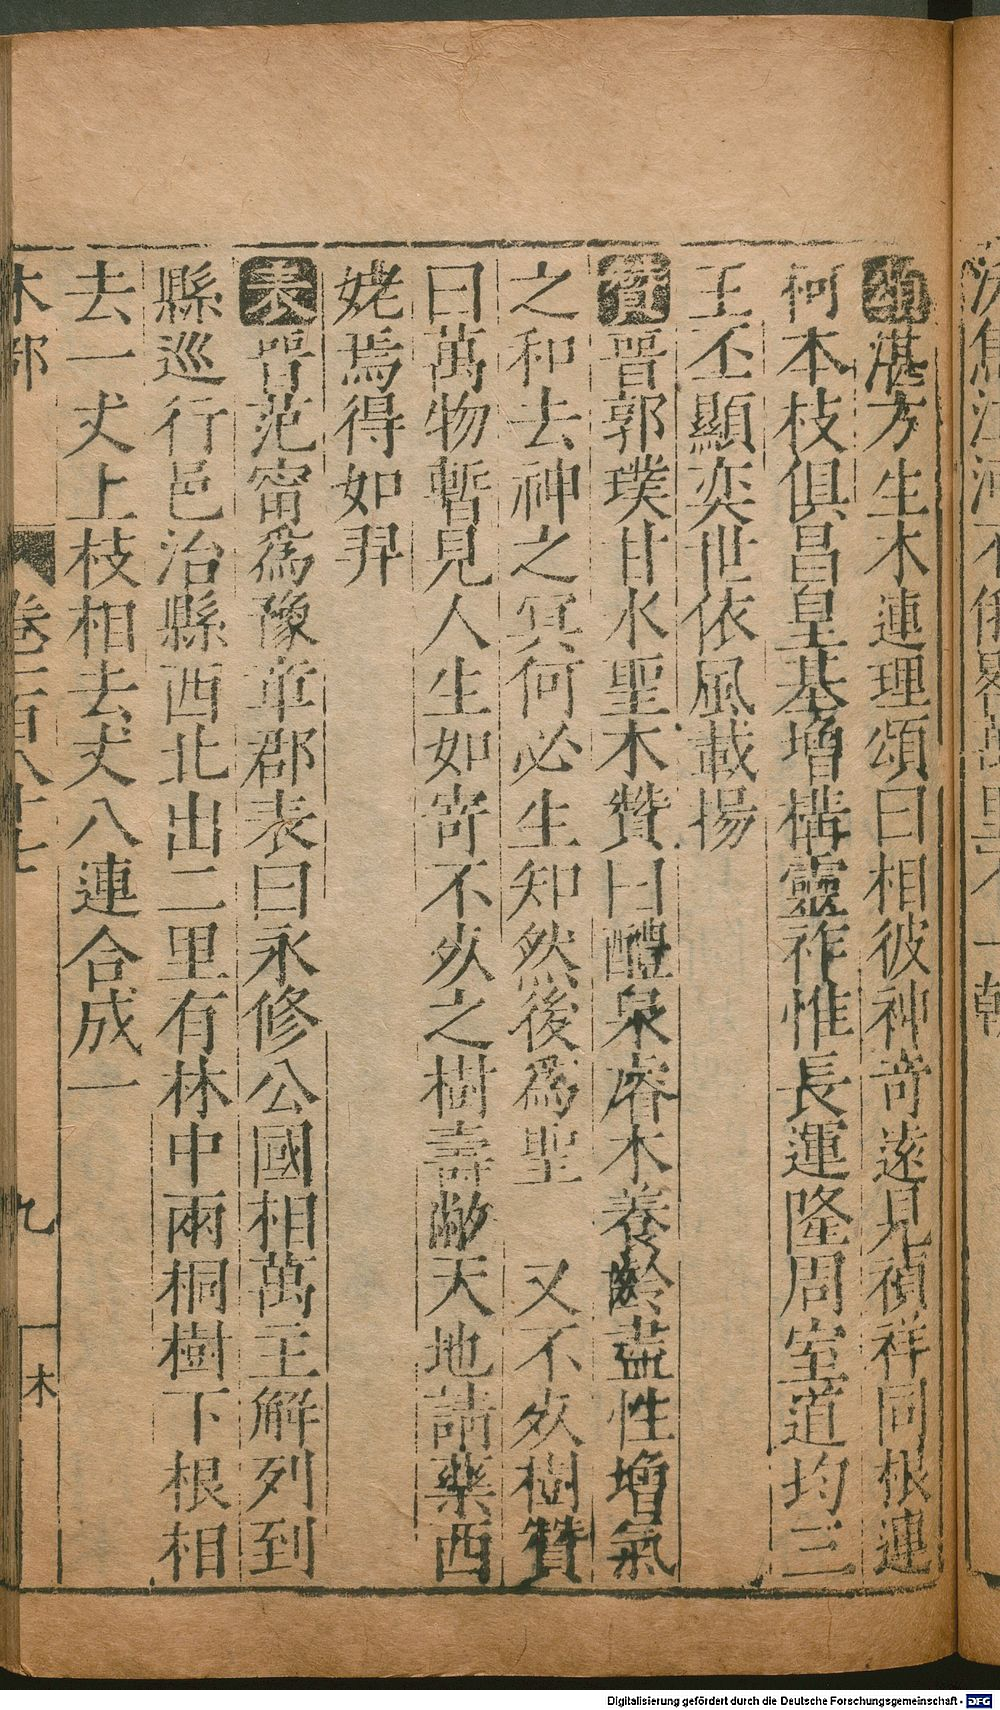 頌湛方生木連理頌曰相彼神奇遠見禎祥同根連
柯本枝俱昌皇基增構靈祚惟長運隆周室道均三
王丕顯奕世依風載揚
贊晉郭璞甘水聖木贊曰醴泉睿木養齡盡性增氣
之和去神之冥何必生知然後爲聖 又不死樹贊
曰萬物暫見人生如寄不死之樹壽敝天地請藥西
姥焉得如羿
表晉范甯爲豫章郡表曰永修公國相萬主解列到
縣巡行邑治縣西北出二里有林中兩桐樹下根相
去一丈上枝相去丈八連合成一
木部 卷二百八十七 九 木
Digitalisierung gefördert durch die Deutsche Forschungsgemeinschaft - DFG